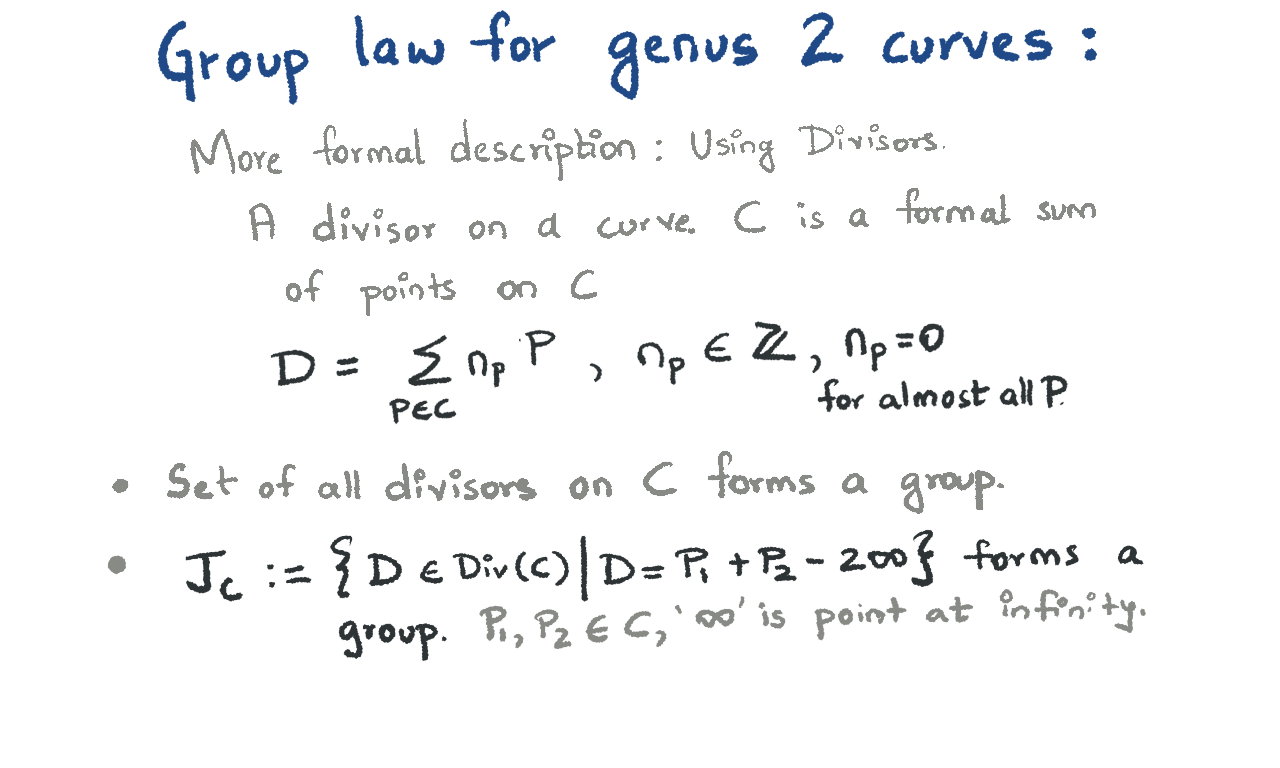 Group law for genus 2 curves :
More formal description : Using Divisors.
A divisor on a curve C is a formal sum
of points on C
D = ∑_{P∈C} n_P P , n_P ∈ ℤ, n_P = 0
for almost all P.
• Set of all divisors on C forms a group.
• J_C := {D ∈ Div(C) | D = P₁ + P₂ - 2∞} forms a
group. P₁, P₂ ∈ C, '∞' is point at infinity.